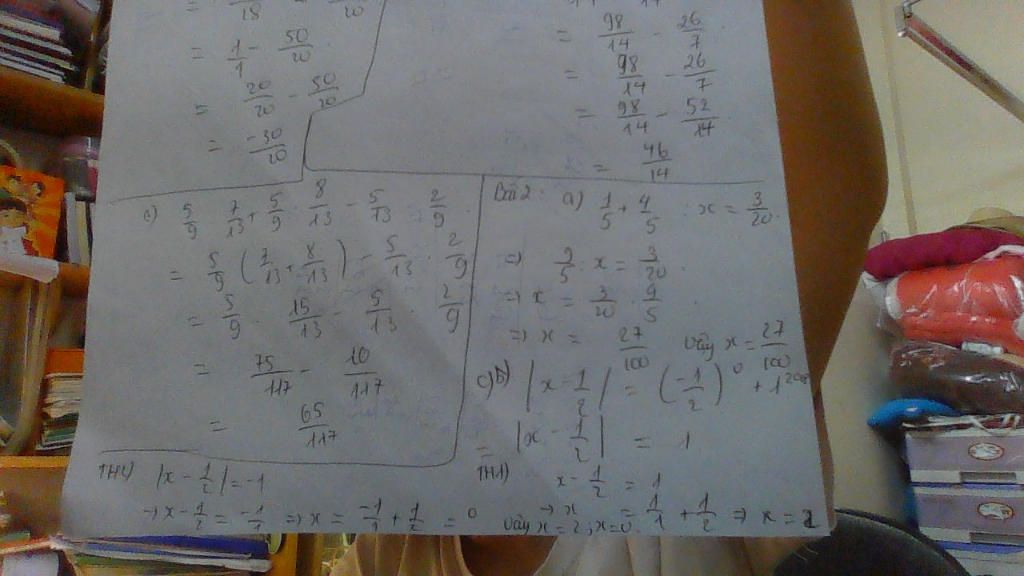 = 1/1 - 50/20
= 20/20 - 50/20
= -30/20
= 98/14 - 26/7
= 98/14 - 26/7
= 98/14 - 52/14
= 46/14
c) 5/9 . 7/13 + 5/9 . 8/13 - 5/13 . 2/9
= 5/9 (7/13 + 8/13) - 5/13 . 2/9
= 5/9 . 15/13 - 5/13 . 2/9
= 75/117 - 10/117
= 65/117
Bài 2: a) 1/5 + 4/5 : x = 3/20.
=> 9/5 . x = 3/20.
=> x = 3/20 . 9/5
=> x = 27/100 vậy x = 27/100
c) b) |x - 1/2| = (-1/2)^0 +
= |x - 1/2| = 1
TH1) x - 1/2 = 1
-> x = 1/1 + 1/2 => x = 2
vậy x = 2; x = 0.
|x - 1/2| = -1
-> x - 1/2 = -1/1 => x = -1/1 + 1/2 = 0